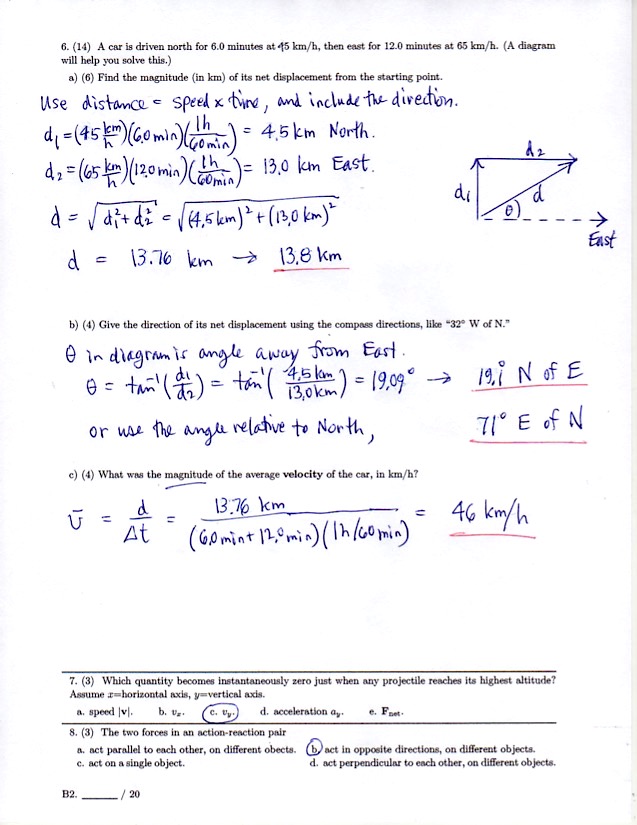 6. (14) A car is driven north for 6.0 minutes at 45 km/h, then east for 12.0 minutes at 65 km/h. (A diagram
will help you solve this.)
a) (6) Find the magnitude (in km) of its net displacement from the starting point.
Use distance = speed x time, and include the direction.
d₁ = (45 km/h)(6.0 min)(1h/60min) = 4.5 km North.
d₂ = (65 km/h)(12.0 min)(1h/60min) = 13.0 km East.
d = √(d₁² + d₂²) = √((4.5 km)² + (13.0 km)²)
d = 13.76 km → 13.8 km
d₂
d₁
d
θ
East
b) (4) Give the direction of its net displacement using the compass directions, like "32° W of N."
θ in diagram is angle away from East.
θ = tan⁻¹(d₁/d₂) = tan⁻¹(4.5 km/13.0 km) = 19.09° → 19.1° N of E
or use the angle relative to North, 71° E of N
c) (4) What was the magnitude of the average velocity of the car, in km/h?
v̄ = d/Δt = 13.76 km/(6.0 min + 12.0 min)(1h/60min) = 46 km/h
7. (3) Which quantity becomes instantaneously zero just when any projectile reaches its highest altitude?
Assume x=horizontal axis, y=vertical axis.
a. speed |v|. b. vₓ. c. v_y. d. acceleration a_y. e. F_net.
8. (3) The two forces in an action-reaction pair
a. act parallel to each other, on different obects. b. act in opposite directions, on different objects.
c. act on a single object. d. act perpendicular to each other, on different objects.
B2. ______ / 20